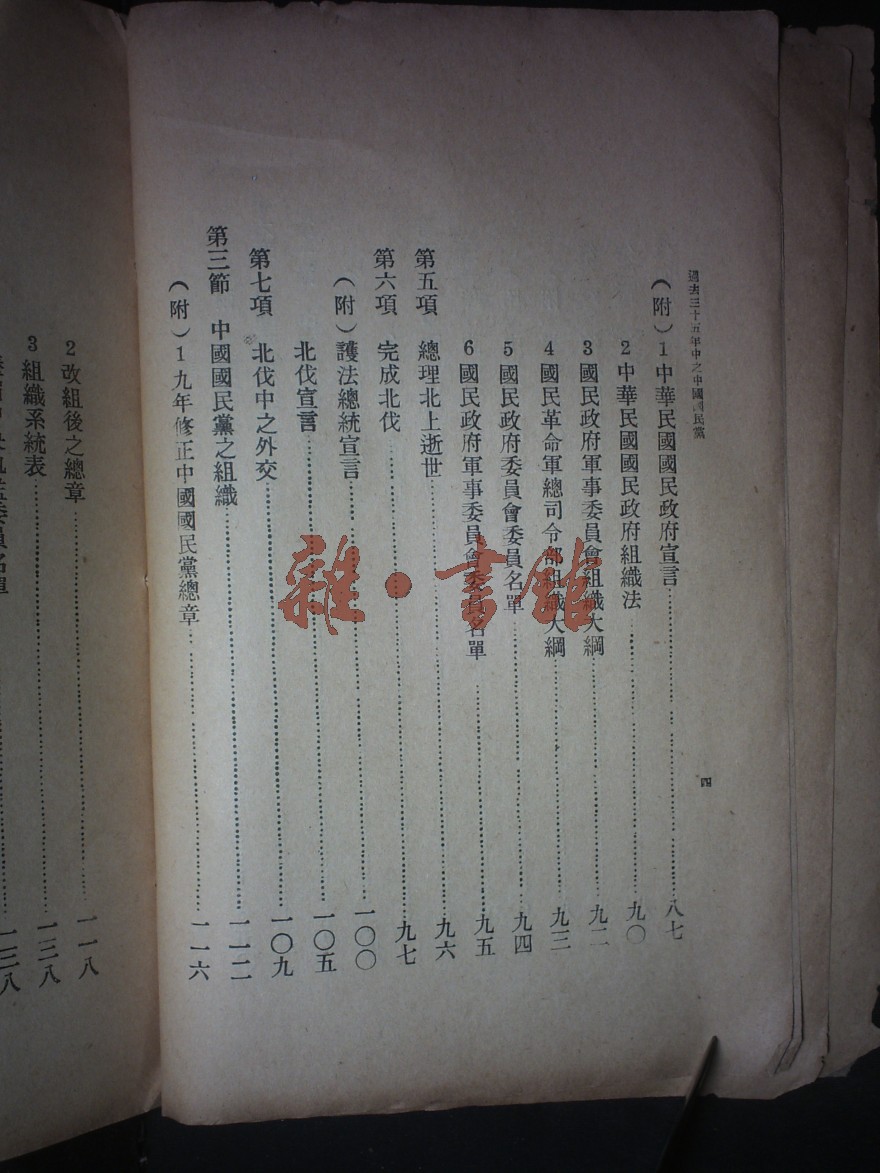 過去三十五年中之中國國民黨
四
（附）1中華民國國民政府宣言……八七
2中華民國國民政府組織法……九〇
3國民政府軍事委員會組織大綱……九二
4國民革命軍總司令部組織大綱……九三
5國民政府委員會委員名單……九四
6國民政府軍事委員會委員名單……九五
第五項　總理北上逝世……九六
第六項　完成北伐……九七
（附）護法總統宣言……一〇〇
北伐宣言……一〇五
第七項　北伐中之外交……一〇九
第三節　中國國民黨之組織……一一二
（附）1九年修正中國國民黨總章……一一六
2改組後之總章……一一八
3組織系統表……一三八
委員名單……一三八
雜·書館